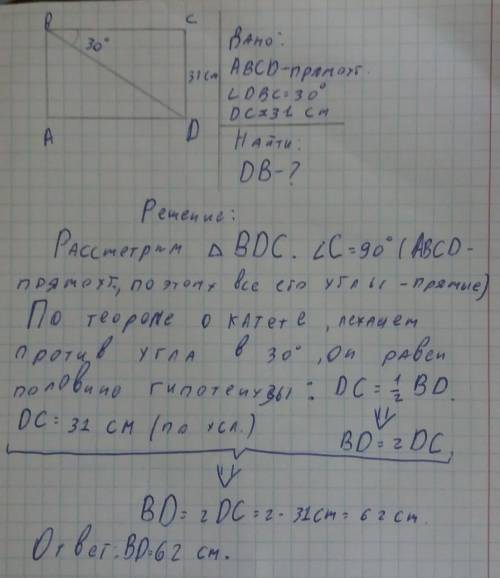 B C
30°
31 см
A D
Дано:
ABCD-прямоуг.
∠DBC=30°
DC=31 см
Найти:
DB-?
Решение:
Рассмотрим △ BDC. ∠C=90° (ABCD-
прямоуг., поэтому все его углы -прямые)
По теореме о катете, лежащем
против угла в 30°, он равен
половине гипотенузы: DC=½ BD.
⇓
DC=31 см (по усл.)
BD=2DC,
⇓
BD=2DC=2·31см=62 см.
Ответ: BD=62 см.